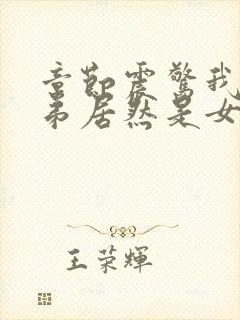 章節震驚我
弟居然是女
王荣輝